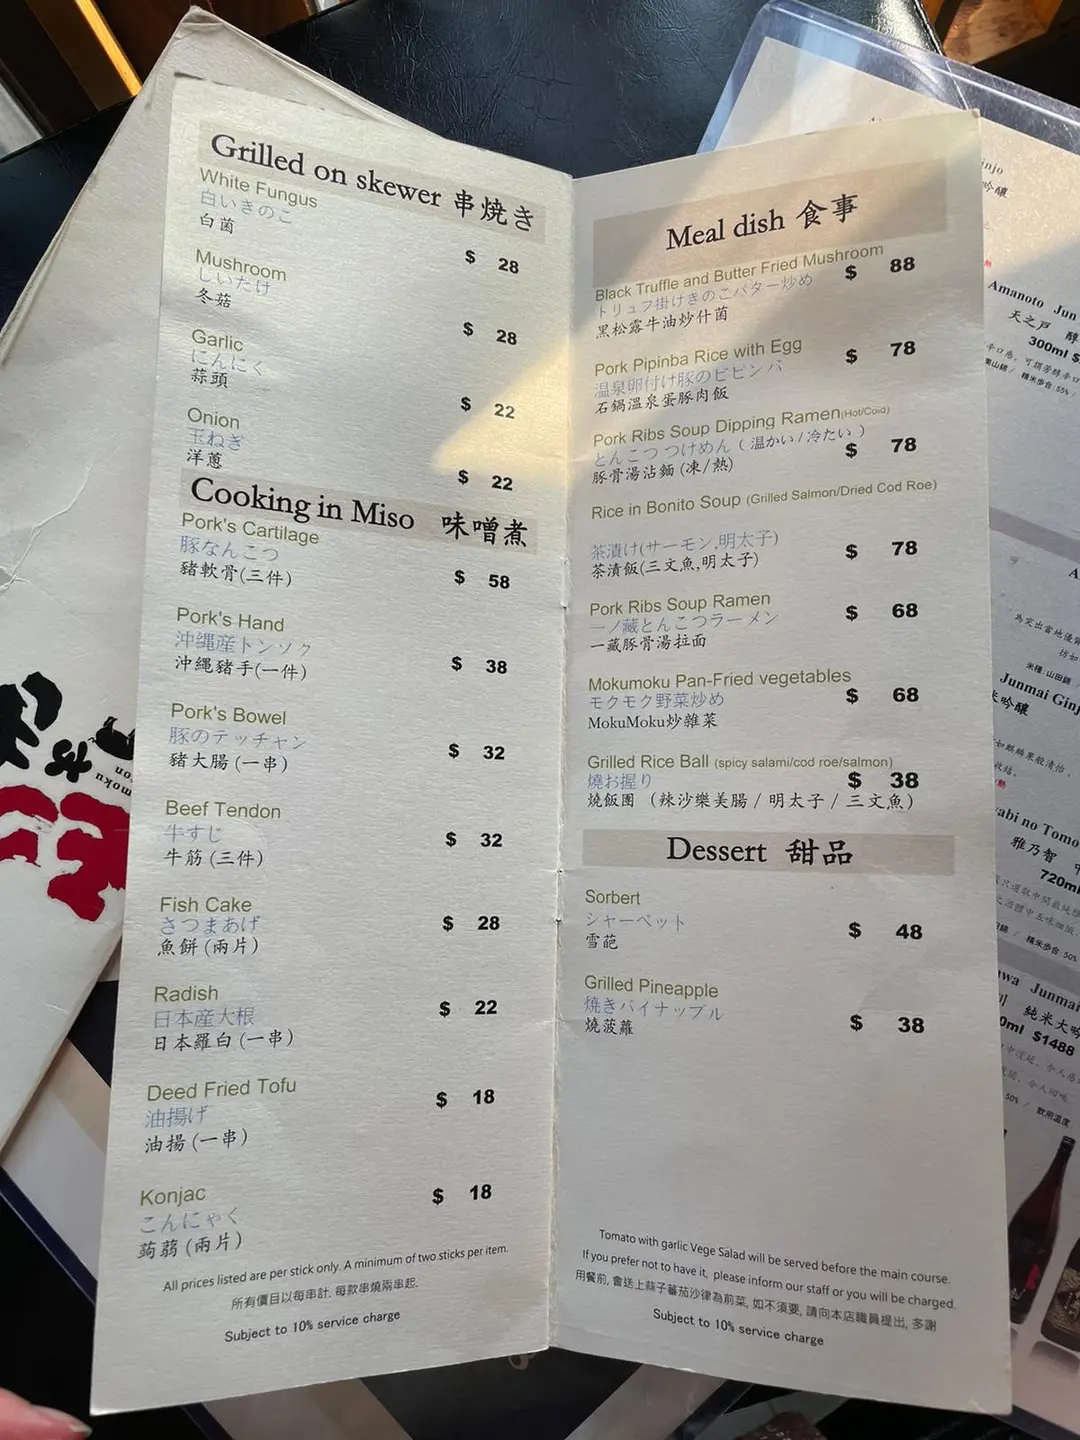 Grilled on skewer 串焼き
White Fungus
白いきのこ
白菌
$ 28
Mushroom
しいたけ
冬菇
$ 28
Garlic
にんにく
蒜頭
$ 22
Onion
玉ねぎ
洋蔥
$ 22
Cooking in Miso 味噌煮
Pork's Cartilage
豚なんこつ
豬軟骨(三件)
$ 58
Pork's Hand
沖縄産トンソク
沖繩豬手(一件)
$ 38
Pork's Bowel
豚のテッチャン
豬大腸(一串)
$ 32
Beef Tendon
牛すじ
牛筋(三件)
$ 32
Fish Cake
さつまあげ
魚餅(兩片)
$ 28
Radish
日本産大根
日本羅白(一串)
$ 22
Deed Fried Tofu
油揚げ
油揚(一串)
$ 18
Konjac
こんにゃく
蒟蒻(兩片)
$ 18
All prices listed are per stick only. A minimum of two sticks per item.
所有價目以每串計, 每款串燒兩串起.
Subject to 10% service charge
Meal dish 食事
Black Truffle and Butter Fried Mushroom
トリュフ掛けきのこバター炒め
黑松露牛油炒什菌
$ 88
Pork Pipinba Rice with Egg
温泉卵付け豚のビビンバ
石鍋溫泉蛋豚肉飯
$ 78
Pork Ribs Soup Dipping Ramen(Hot/Cold)
とんこつつけめん(温かい/冷たい)
豚骨湯沾麵(凍/熱)
$ 78
Rice in Bonito Soup (Grilled Salmon/Dried Cod Roe)
茶漬け(サーモン,明太子)
茶漬飯(三文魚,明太子)
$ 78
Pork Ribs Soup Ramen
一ノ藏とんこつラーメン
一藏豚骨湯拉面
$ 68
Mokumoku Pan-Fried vegetables
モクモク野菜炒め
MokuMoku炒雜菜
$ 68
Grilled Rice Ball (spicy salami/cod roe/salmon)
燒お握り
$ 38
燒飯團 (辣沙樂美腸/明太子/三文魚)
Dessert 甜品
Sorbert
シャーベット
雪葩
$ 48
Grilled Pineapple
焼きパイナップル
燒菠蘿
$ 38
Tomato with garlic Vege Salad will be served before the main course.
If you prefer not to have it, please inform our staff or you will be charged.
用餐前, 會送上蒜子蕃茄沙律為前菜, 如不須要, 請向本店職員提出, 多謝
Subject to 10% service charge
injo
吟釀
Amanoto Jun
天之戸 醇
300ml $
Junmai Ginj
米吟釀
abi no Tomo
雅乃智
720ml
Junmai
純米大吟
0ml $1488
50% / 飲用溫度